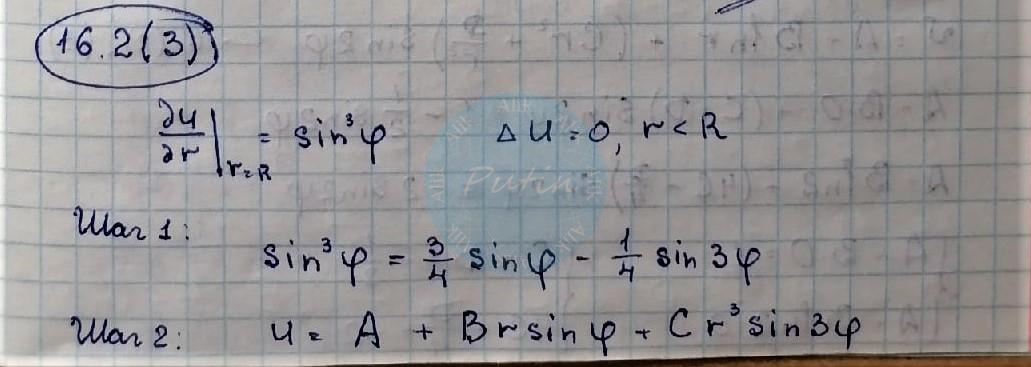 16.2(3)
∂u/∂r |r=R = sin³φ Δu=0, r<R
Шаг 1:
sin³φ = 3/4 sinφ - 1/4 sin3φ
Шаг 2: u = A + Br sinφ + Cr³ sin3φ
Putin